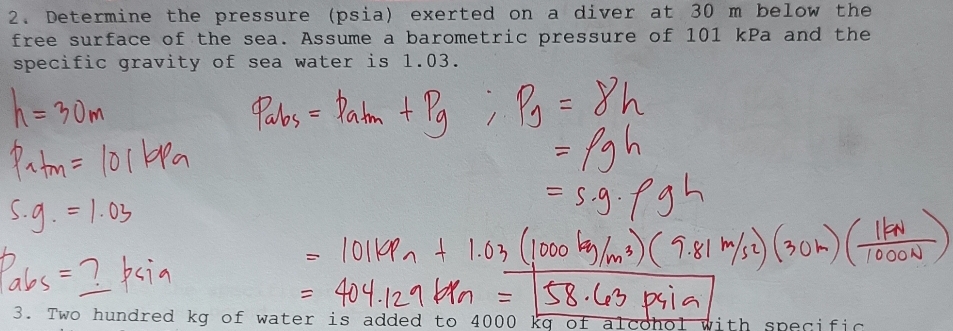 2. Determine the pressure (psia) exerted on a diver at 30 m below the
free surface of the sea. Assume a barometric pressure of 101 kPa and the
specific gravity of sea water is 1.03.
h = 30m
Pabs = Patm + Pg ; Pg = γh
Patm = 101 kPa
= ρgh
s.g. = 1.03
= s.g. ρgh
= 101kPa + 1.03 (1000 kg/m³)(9.81 m/s²)(30m)(1kN/1000N)
Pabs = ? psia
= 404.129 kPa = 58.63 psia
3. Two hundred kg of water is added to 4000 kg of alcohol with specific